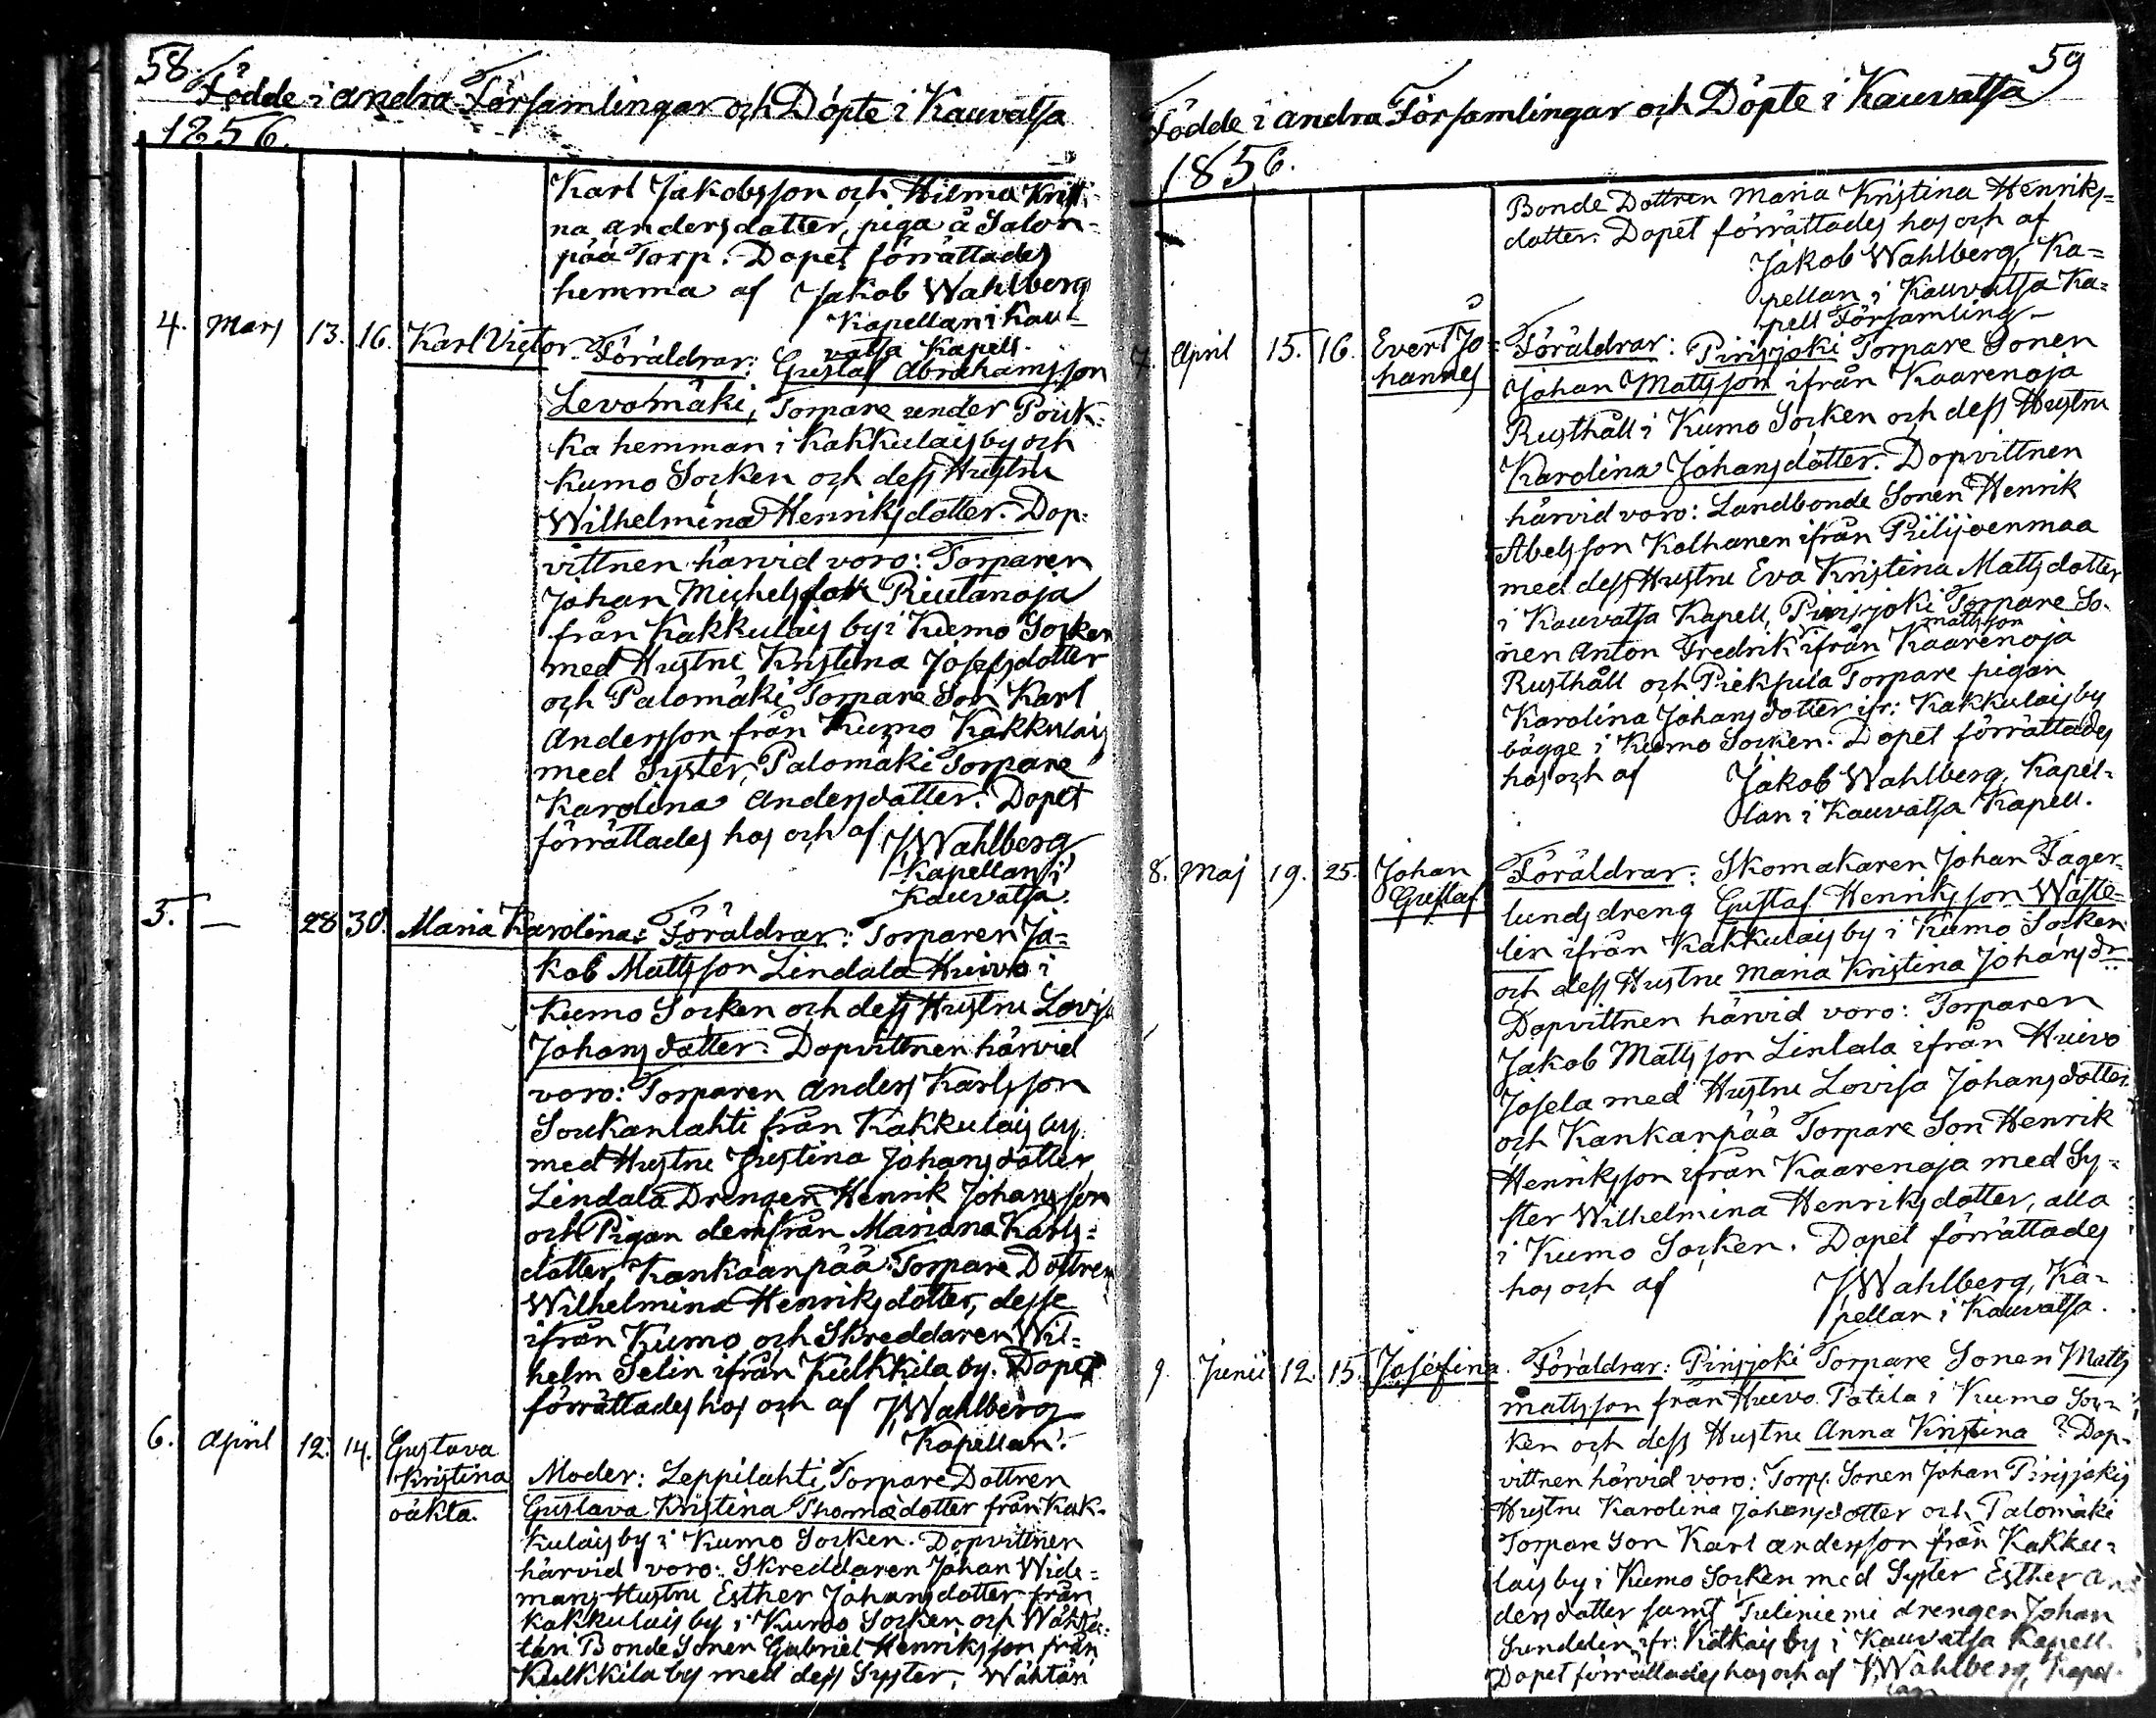 58.
Födde i andra Församlingar och Döpte i Kauvatsa
1856.
Karl Jakobsson och Hilma Kristi
na Andersdotter, piga å Salon-
pää Torp. Dopet förrättades
hemma af Jakob Wahlberg
Kapellan i Kau-
vatsa Kapell.
4. Mars 13. 16. Karl Victor. Föräldrar: Gustaf Abrahamsson
Levomäki, Torpare under Pouk-
ka hemman i Kakkulais by och
Kumo Socken och dess Hustru
Wilhelmina Henriksdotter. Dop-
vittnen härvid voro: Torparen
Johan Michelsson Riutanoja
från Kakkulais by i Kumo Socken
med Hustru Kristina Josefsdotter
och Palomäki Torpare Son Karl
Andersson från Kumo Kakkulais
med Syster, Palomäki Torpare
Karolina Andersdotter. Dopet
förrättades hos och af J Wahlberg
Kapellan i
Kauvatsa.
5. — 28 30. Maria Karolina: Föräldrar: Torparen Ja-
kob Mattsson Lindala Huivo i
Kumo Socken och dess Hustru Lovisa
Johansdotter. Dopvittnen härvid
voro: Torparen Anders Karlsson
Soukanlahti från Kakkulais by
med Hustru Justina Johansdotter,
Lindala Drengen Henrik Johansson
och Pigan demifrån Mariana Karls-
dotter, Kankaanpää Torpare Dottren
Wilhelmina Henriksdotter, desse
ifrån Kumo och Skreddaren Wil-
helm Selin ifrån Kulkkila by. Dopet
förrättades hos och af J Wahlberg
Kapellan.
6. April 12. 14. Gustava
Kristina
oäkta.
Moder: Leppilahti Torpare Dottren
Gustava Kristina Thomædotter från Kak-
kulais by i Kumo Socken. Dopvittnen
härvid voro: Skreddaren Johan Wide-
mans Hustru Esther Johansdotter från
Kakkulais by i Kumo Socken och Wähtä-
täri Bonde Sonen Gabriel Henriksson från
Kulkkila by med dess Syster, Wähtäri
59
Födde i andra Församlingar och Döpte i Kauvatsa
1856.
Bonde Dottren Maria Kristina Henriks-
dotter. Dopet förrättades hos och af
Jakob Wahlberg, Ka-
pellan i Kauvatsa Ka-
pell Församling.
7. April 15. 16. Evert Jo-
hannes
Föräldrar: Pirisjoki Torpare Sonen
Johan Mattsson ifrån Kaarenoja
Rusthåll i Kumo Socken och dess Hustru
Karolina Johansdotter. Dopvittnen
härvid voro: Landbonde Sonen Henrik
Abelsson Kolhanen ifrån Piilijoenmaa
med dess Hustru Eva Kristina Mattsdotter
i Kauvatsa Kapell, Pirisjoki Torpare So-
nen Anton Fredrik Mattsson ifrån Kaarenoja
Rusthåll och Piekpila Torpare pigan
Karolina Johansdotter ifr: Kakkulais by
bägge i Kumo Socken. Dopet förrättades
hos och af Jakob Wahlberg, Kapel-
lan i Kauvatsa Kapell.
8. Maj 19. 25. Johan
Gustaf
Föräldrar: Skomakaren Johan Fager-
lunds dreng Gustaf Henriksson Wäste-
lin ifrån Kakkulais by i Kumo Socken
och dess Hustru Maria Kristina Johansdr.
Dopvittnen härvid voro: Torparen
Jakob Mattsson Linlala ifrån Huivo
Josela med Hustru Lovisa Johansdotter
och Kankanpää Torpare Son Henrik
Henriksson ifrån Kaarenoja med Sy-
ster Wilhelmina Henriksdotter, alla
i Kumo Socken. Dopet förrättades
hos och af J Wahlberg, Ka-
pellan i Kauvatsa.
9. Junii 12. 15. Josefina. Föräldrar: Pirisjoki Torpare Sonen Matts
Mattsson från Huivo Potila i Kumo Soc-
ken och dess Hustru Anna Kristina ? Dop-
vittnen härvid voro: Torp. Sonen Johan Pirisjokis
Hustru Karolina Johansdotter och Palomäki
Torpare Son Karl Andersson från Kakku-
lais by i Kumo Socken med Syster Esther An-
dersdotter samt Tuliniemi drengen Johan
Sundelin ifr: Kotkais by i Kauvatsa Kapell.
Dopet förrättades hos och af J Wahlberg, Kapel-
lan